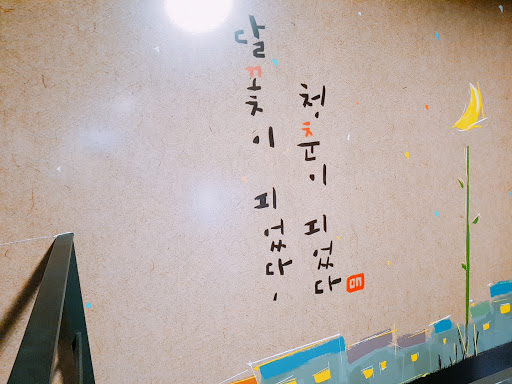 달꽃이 피었다,
청춘이 피었다
on